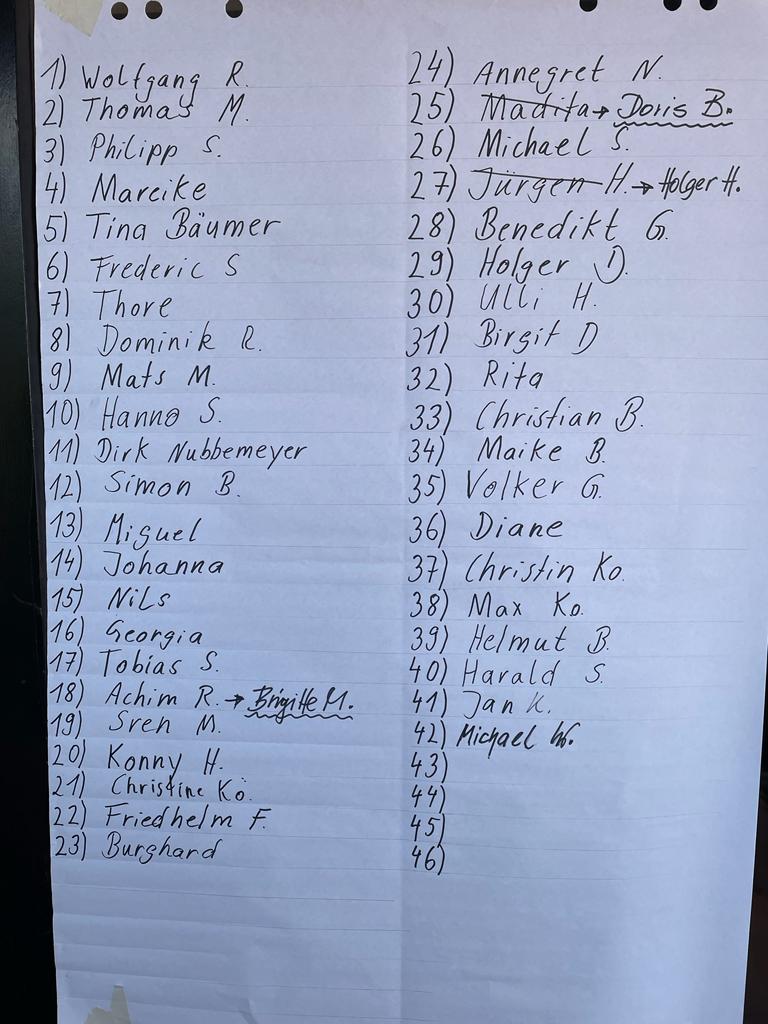 1) Wolfgang R.
2) Thomas M.
3) Philipp S.
4) Mareike
5) Tina Bäumer
6) Frederic S
7) Thore
8) Dominik R.
9) Mats M.
10) Hanno S.
11) Dirk Nubbemeyer
12) Simon B.
13) Miguel
14) Johanna
15) Nils
16) Georgia
17) Tobias S.
18) Achim R. → Brigitte M.
19) Sren M.
20) Konny H.
21) Christine Kö.
22) Friedhelm F.
23) Burghard
24) Annegret N.
25) Madita → Doris B.
26) Michael S.
27) Jürgen H. → Holger H.
28) Benedikt G.
29) Holger D.
30) Ulli H.
31) Birgit D
32) Rita
33) Christian B.
34) Maike B.
35) Volker G.
36) Diane
37) Christin Ko.
38) Max Ko.
39) Helmut B.
40) Harald S.
41) Jan K.
42) Michael W.
43)
44)
45)
46)